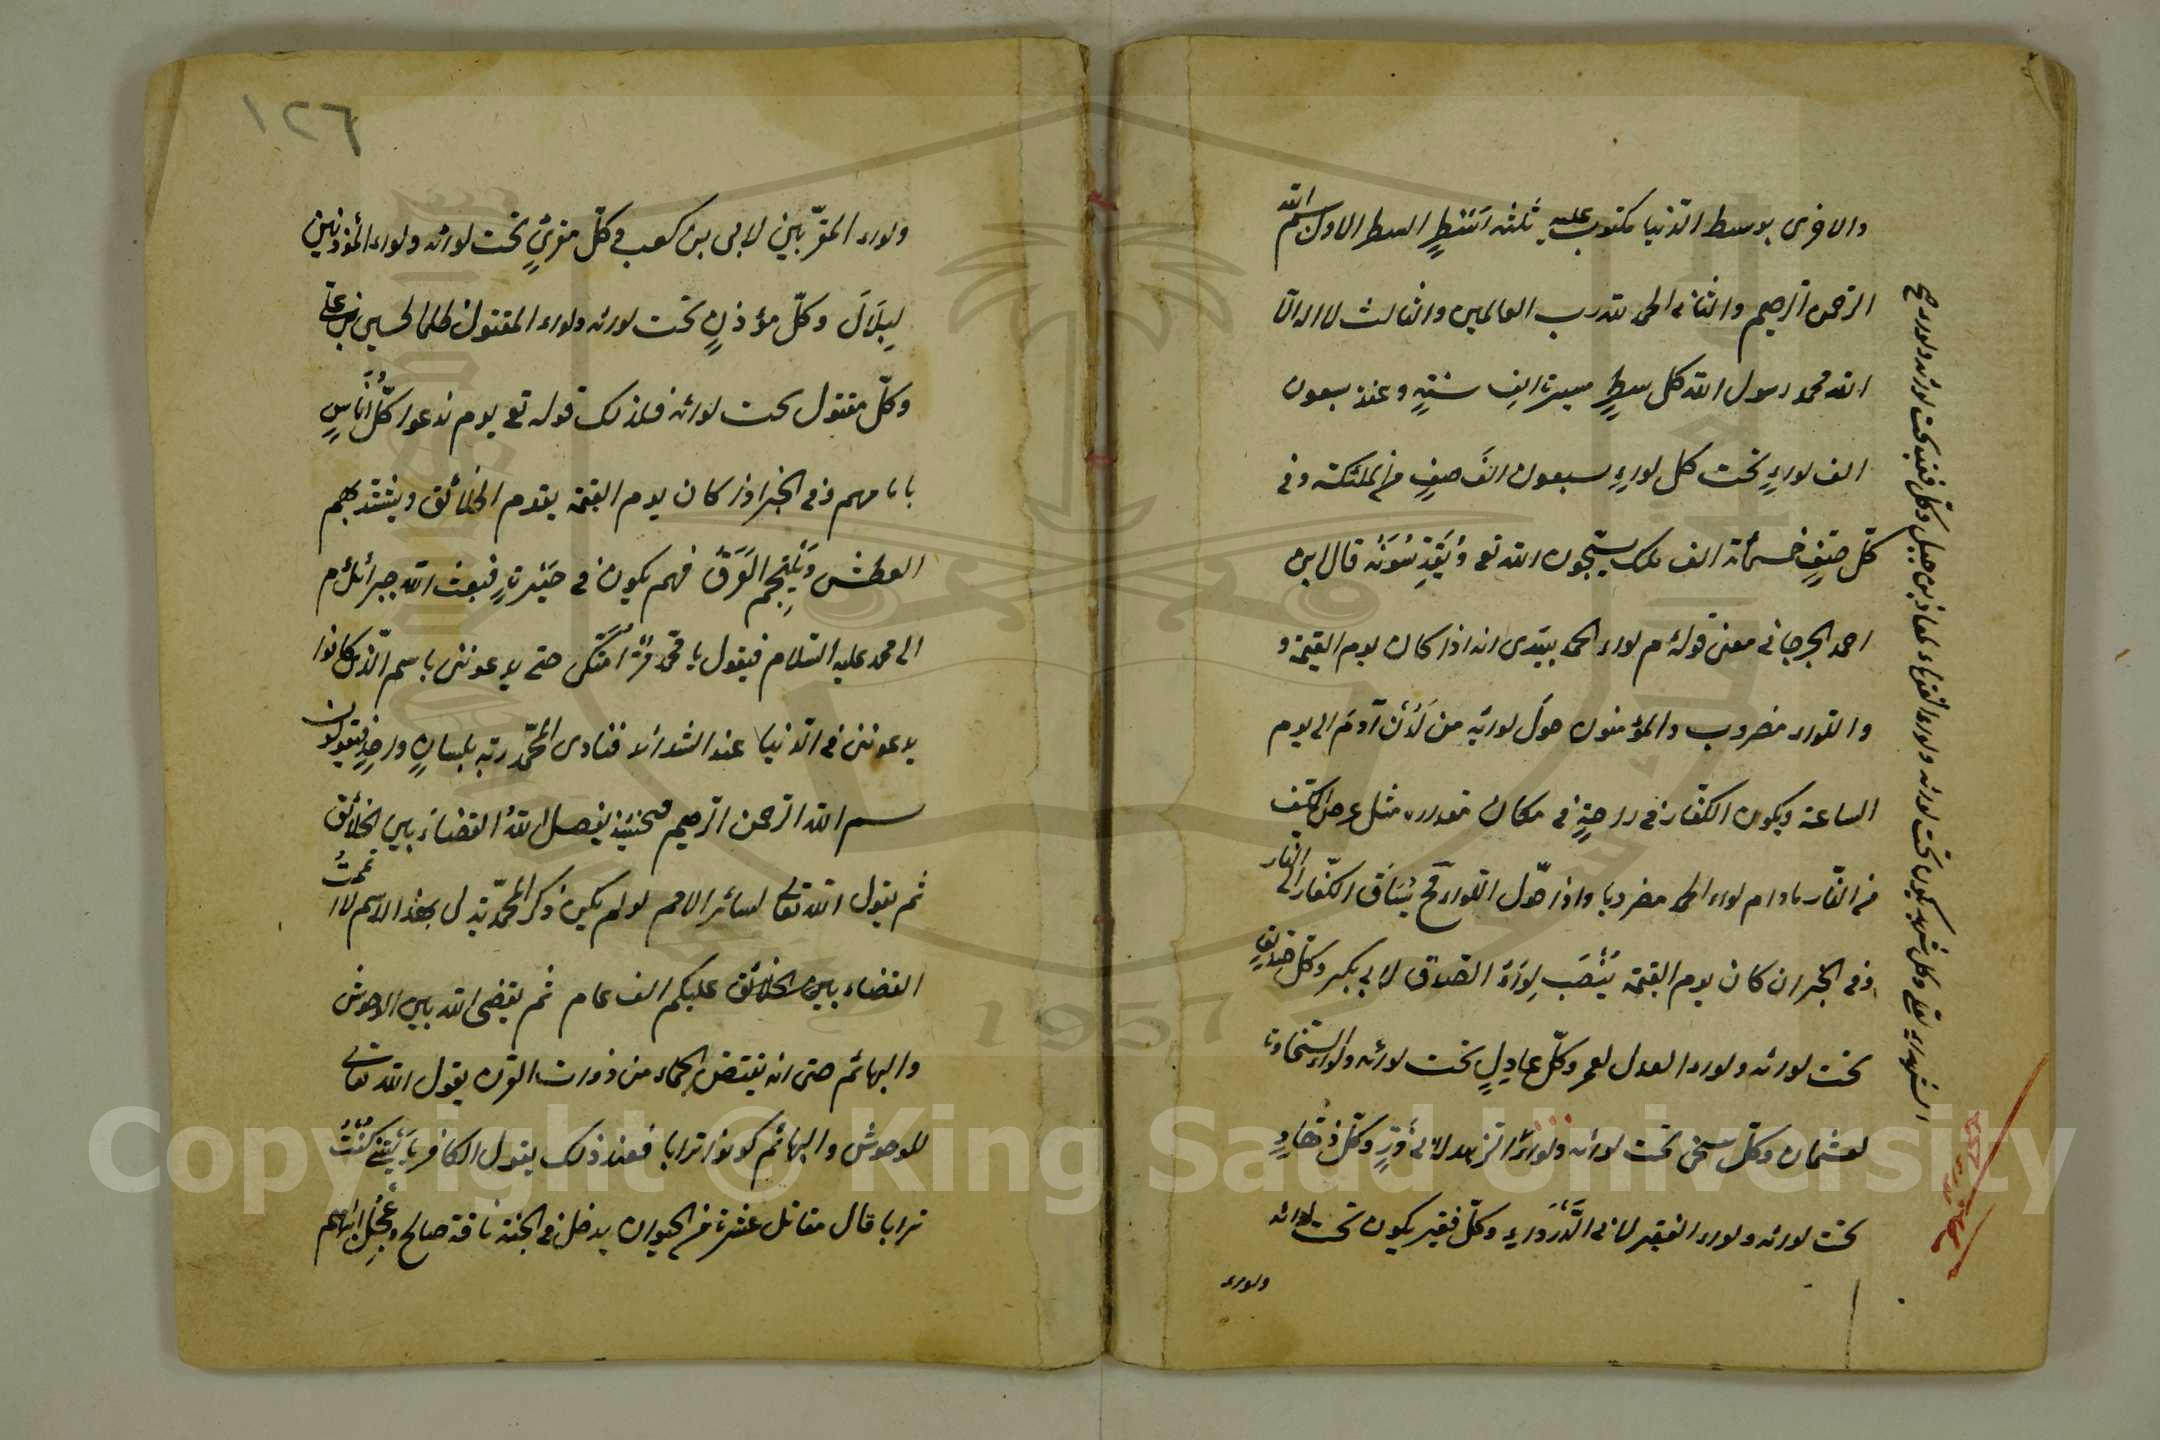 والاخرى بوسط الدنيا مكتوب عليه ثلثه اسطر السطر الاول بسم الله
الرحمن الرحيم والثانى الحمد لله رب العالمين والثالث لا اله الا
الله محمد رسول الله كل سطر مسيرة الف سنة وعنده سبعون
الف لواء تحت كل لواء سبعون الف صف من الملئكة وفى
كل صف خمسمائة الف ملك يسبحون الله تع ويقدسونه قال ابن
احمد الجرجانى معنى قوله م لواء الحمد بيدى انه اذا كان يوم القيمة و
واللواء مضروب والمؤمنون حول لوائه من لدن آدم الى يوم
الساعة ويكون الكفار فى
مكان
مثل عرض الكتف
من النار مادام لواء الحمد مضروبا واذا حول اللواء ح يساق الكفار الى النار
وفى الخبر ان كان يوم القيمة ينصب لواء الصدق لابى بكر وكل صديق
تحت لوائه ولواء العدل لعمر وكل عادل تحت لوائه ولواء السخاوة
لعثمان وكل سخى تحت لوائه ولواء الزهد لابى ذر وكل زهاد
تحت لوائه ولواء الفقير لابى الدرداء وكل فقير يكون تحت لوائه
ولواء
الشهداء لعلى وكل شهيد يكون تحت لوائه ولواء الفقهاء لمعاذ بن جبل وكل فقيه تحت لوائه ولواء صح
١٢٦
ولواء المقربين لابى بن كعب فى كل مقرئ تحت لوائه ولواء المؤذنين
لبلال وكل مؤذن تحت لوائه ولواء المقتول ظلما لحسين بن على
وكل مقتول تحت لوائه فلذلك قوله تع يوم ندعوا كل اناس
بامامهم وفى الخبر اذا كان يوم القيمة يقدم الخلائق ويشتد بهم
العطش ويلجم العرق فهم يكون فى حيرة فبعث الله جبرائل م
الى محمد عليه السلام فيقول يا محمد مر امتك حتى يدعوننى باسم الذى كانوا
يدعوننى فى الدنيا عند الشدائد فنادى المحمد ربه بلسان واحد فيقولون
بسم الله الرحمن الرحيم فحينئذ يفصل الله القضاء بين الخلائق
ثم يقول الله تعالى لسائر الامم لو لم يكن ذكر المحمد
بهذا الاسم لاتممت
القضاء بين الخلائق عليكم الف عام ثم يقضى الله بين الوحوش
والبهائم حتى انه يقتص الجماء من ذوات القرن يقول الله تعالى
للوحوش والبهائم كونوا ترابا فعند ذلك يقول الكافر يا ليتنى كنت
ترابا قال مقاتل عشرة من الحيوان يدخل فى الجنة ناقة صالح وعجل ابراهيم
1957
Copyright © King Saud University